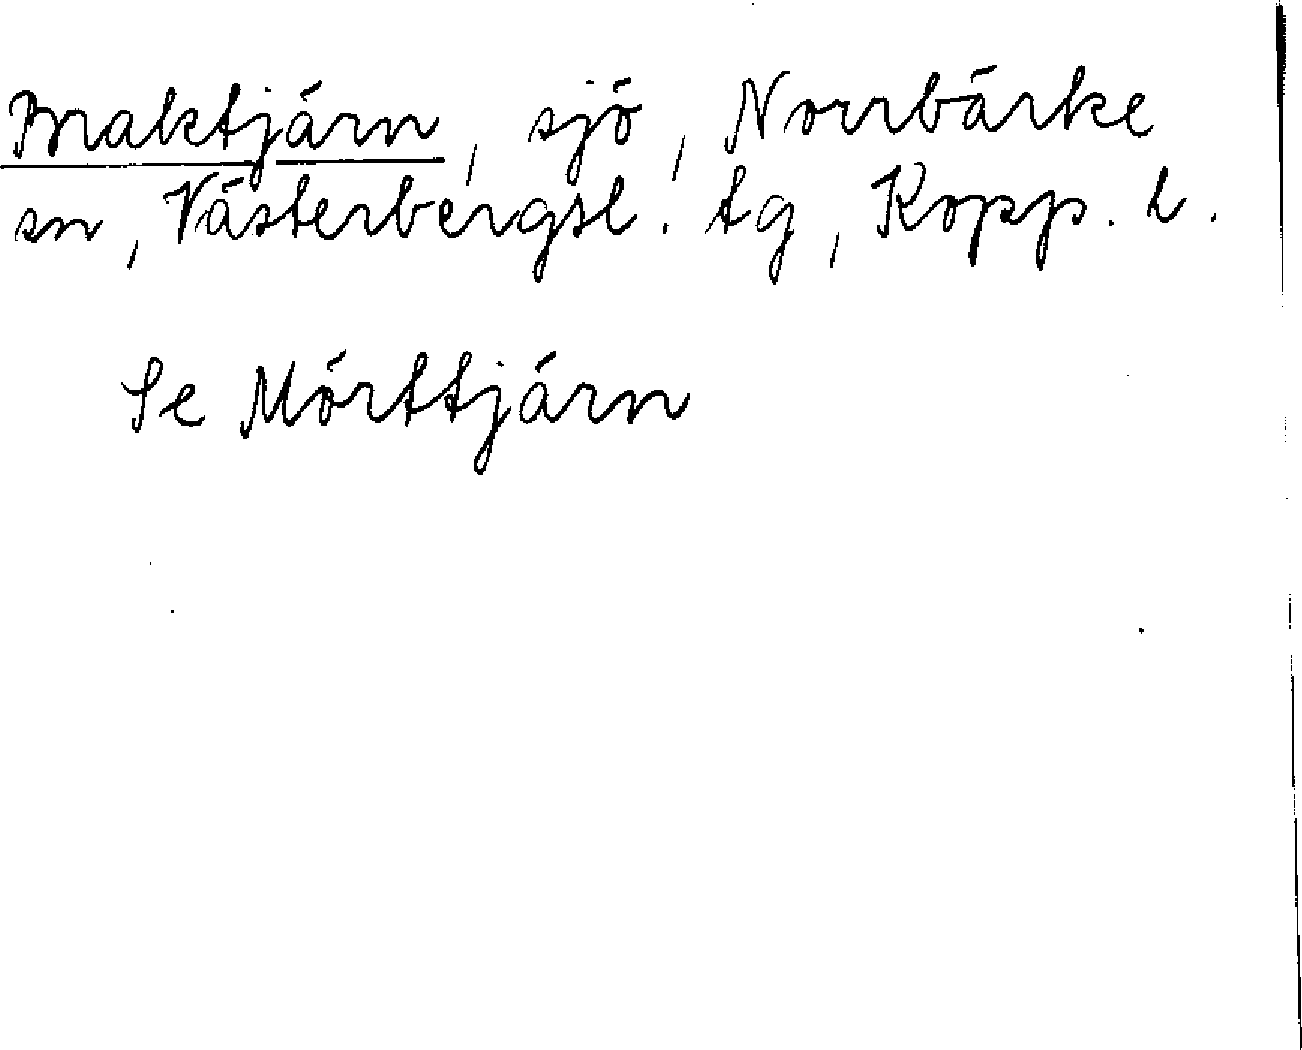 Braktjärn, sjö, Norrbärke
sn, Västerbergsl. tg, Kopp. l.
Se Mörttjärn